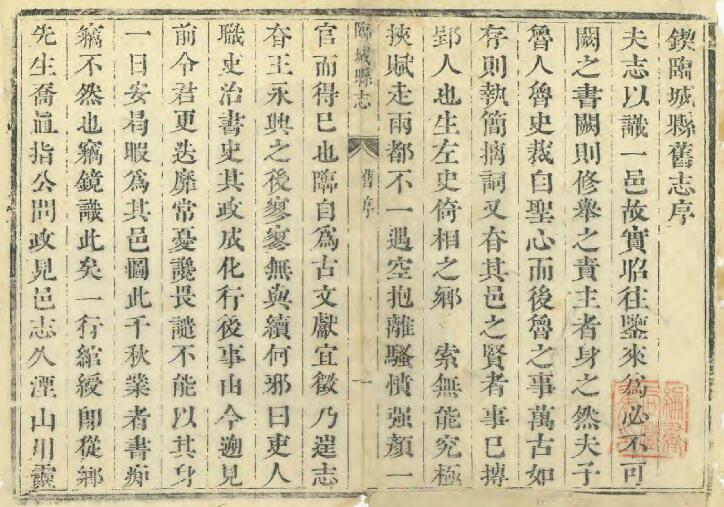 鍥臨城縣舊志序
夫志以識一邑故實昭往鑒來為必不可
闕之書闕則修舉之責主者身之然夫子
魯人魯史裁自聖心而後魯之事萬古如
存則執簡摛詞又存其邑之賢者事已摶
郢人也生左史倚相之鄉 索無能究極
挾賦走兩都不一遇空抱離騷憤强顏一
臨城縣志 舊序 一
官而得巳也臨自為古文獻宜徵乃逞志
存王永興之後寥寥無與續何邪曰吏人
職史治書史其政成化行後事由今遡見
前令君更迭靡常憂讒畏譴不能以其身
一日安局暇為其邑圖此千秋業者書痴
竊不然也竊鏡識此矣一行綰綬卽從鄉
先生喬眞指公問政見邑志久湮山川靈